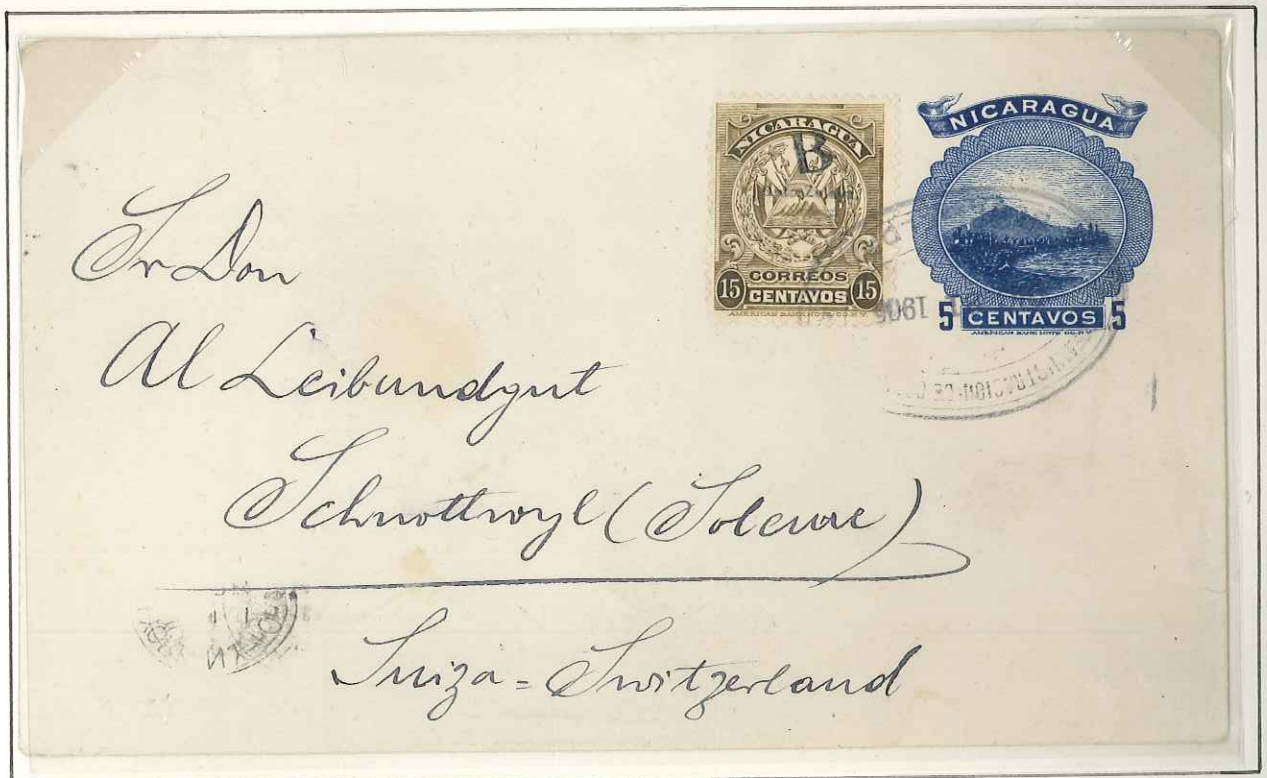 NICARAGUA
B
CORREOS
15 CENTAVOS 15
AMERICAN BANK NOTE CO. N.Y.
NICARAGUA
5 CENTAVOS 5
AMERICAN BANK NOTE CO. N.Y.
1906
Sr Don
Al Leibundgut
Schnottwyl (Soleure)
Suiza = Switzerland